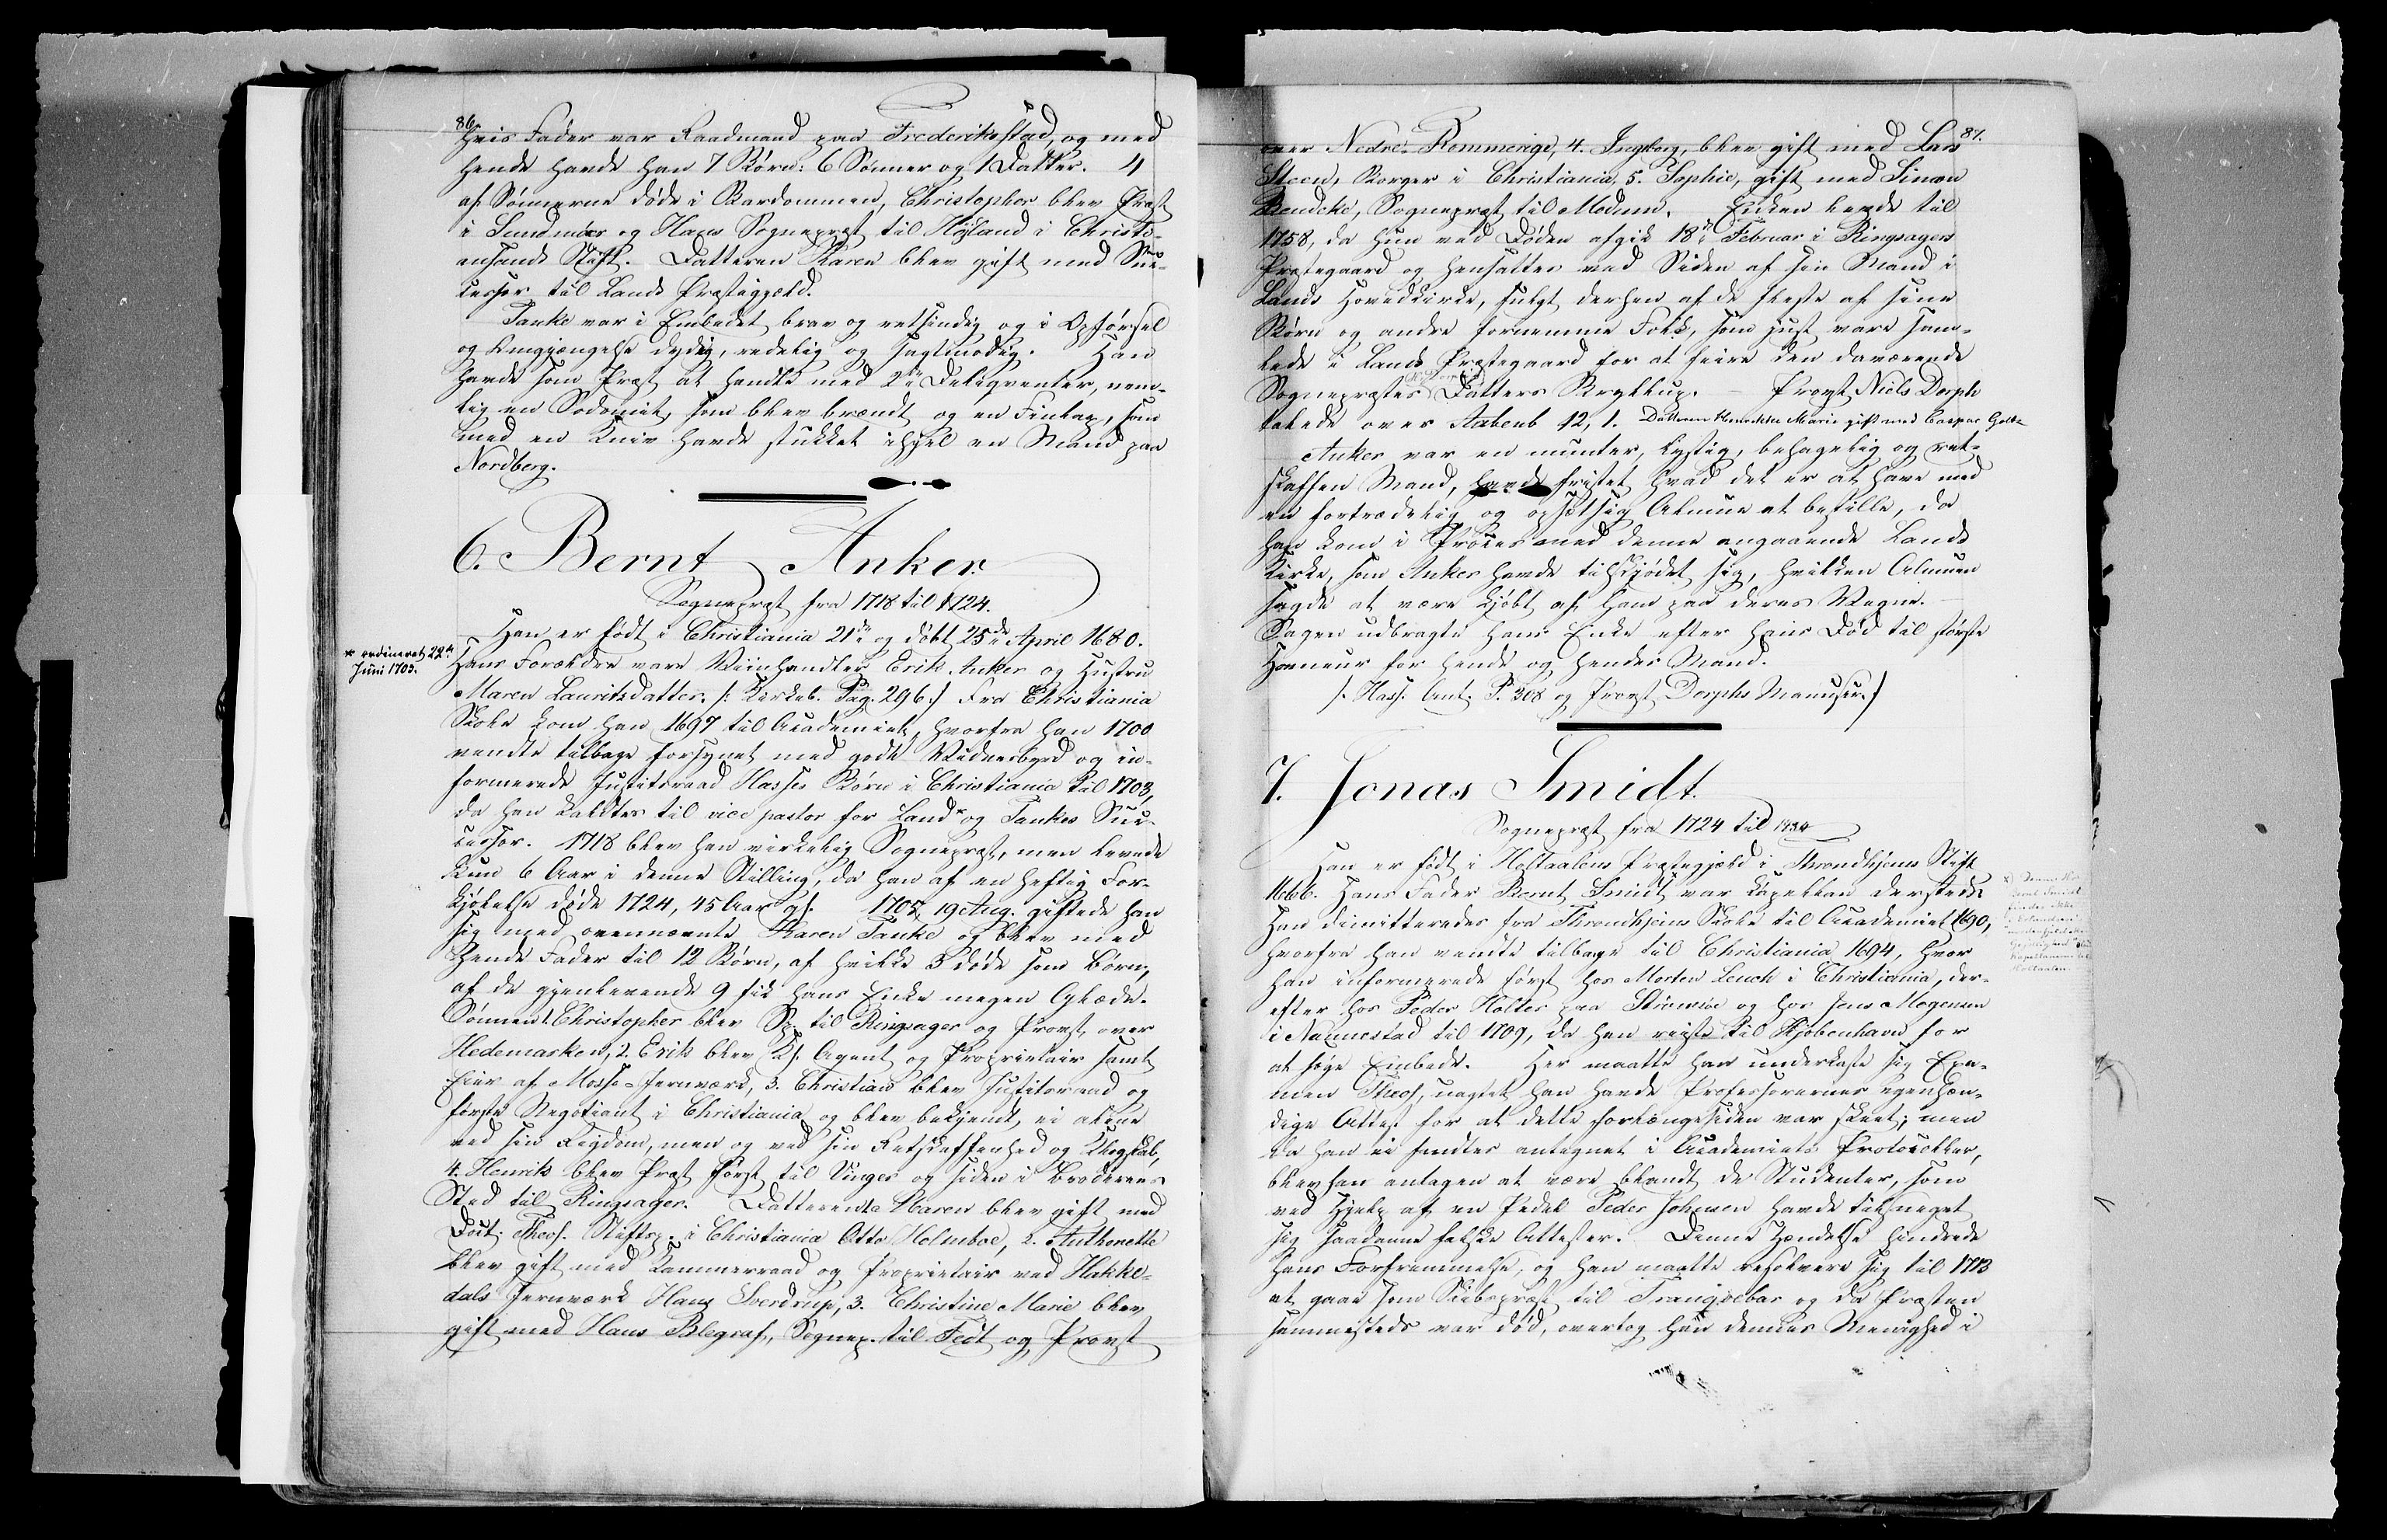 86.
hvis Fader var Raadmand paa Frederiksstad, og med
hende havde han 7 Børn: 6 Sønner og 1 Datter. 4
af Sønnerne døde i Barndommen, Christopher blev Præst
i Sundmør og Hans Sognepræst til Høiland i Christi-
ansands Stift. Datteren Karen blev gift med Suc-
cessor til Lands Præstegjeld.
Tanke var i Embedet brav og retsindig og i Opførsel
og Omgjængelse dydig, redelig og sagtmodig. Han
havde som Præst at handle med 2de Deliqventer, nem-
lig en Sodomit, som blev brændt og en Finlap, som
med en Kniv havde stukket ihjel en Mand paa
Nordberg.
6. Bernt Anker.
Sognepræst fra 1718 til 1724.
Han er født i Christiania 21de og døbt 25de April 1680.
* ordineret 22de
Juni 1703.
Hans Forældre vare Viinhandler Erik Anker og Hustru
Maren Lauritsdatter. /: Kirkeb. Pag. 296 :/ Fra Christiania
Skole kom han 1697 til Academiet, hvorfra han 1700
vendte tilbage forsynet med godt Vidnesbyrd og in-
formerede Justitsraad Hasses Børn i Christiania til 1703,
da han kaldtes til vice pastor for Land* og Tankes Suc-
cessor. 1718 blev han virkelig Sognepræst, men levede
kun 6 Aar i denne Stilling, da han af en heftig For-
kjølelse døde 1724, 45 Aar gl. 1705, 19 Aug. giftede han
sig med ovennævnte Karen Tanke og blev med
hende Fader til 12 Børn, af hvilke 3 døde som Børn,
af de gjenlevende 9 fik hans Enke megen Glæde.
Sønnen 1. Christopher blev Sp. til Ringsager og Provst over
Hedemarken, 2. Erik blev Kgl. Agent og Proprietair samt
Eier af Mosse-Jernværk, 3. Christian blev Justitsraad og
første Negotiant i Christiania og blev bekjendt, ei alene
ved sin Rigdom, men og ved sin Retskaffenhed og Klogskab,
4. Henrik blev Præst først til Vinger og siden i Broderens
Sted til Ringsager. Datteren 1. Karen blev gift med
Doct. Theol. Stiftsp. i Christiania Otto Holmboe, 2. Anthonette
blev gift med Kammerraad og Proprietair ved Hakke-
dals Jernværk Hans Sverdrup, 3. Christine Marie blev
gift med Hans Blegraf, Sognep. til Fedt og Provst
87.
over Nedre-Rommerige, 4. Ingeborg, blev gift med Lars
Steen, Borger i Christiania, 5. Sophie, gift med Simon
Bendeke, Sognepræst til Modum. Enken levde til
1758, da hun ved Døden afgik 18de Februar i Ringsagers
Præstegaard og hensattes ved Siden af sin Mand i
Lands Hovedkirke, fulgt derhen af de fleste af sine
Børn og andre fornemme Folk, som just vare sam-
lede i Lands Præstegaard for at feire den daværende
Sognepræstes Datters Bryllup. – Provst Niels Dorph
talede over Aabenb 12, 1. Datteren Henrikke Marie gift med Caspar
Anker var en munter, lystig, behagelig og ret-
skaffen Mand, havde fristet hvad det er at have med
en fortrædelig og opsetsig Almue at bestille, da
han kom i Proces med denne angaaende Lands
Kirke, som Anker havde tilskjødet sig, hvilken Almuen
sagde at være kjøbt af ham paa deres Vegne. –
Sagen udbragte hans Enke efter hans Død til største
Honneur for hende og hendes Mand.
/: Hass. Ant. P. 308 og Provst Dorphs Manuscr. :/
7. Jonas Smidt.
Sognepræst fra 1724 til 1734
Han er født i Holtaalens Præstegjeld i Throndhjems Stift
1666. Hans Fader Bernt Smidt x var Capellan dersteds.
Han dimitteredes fra Throndhjems Skole til Academiet 1690,
hvorfra han vendte tilbage til Christiania 1694, hvor
han informerede først hos Morten Leuch i Christiania, der-
efter hos Peder Holter paa Strømsøe og hos Jens Mogensen
i Nannestad til 1709, da han reiste til Kjøbenhavn for
at søge Embede. Her maatte han underkaste sig Exa-
men Theol, uagtet han havde Professorernes egenhæn-
dige Attest for at dette forlængesiden var skeet; men
da han ei fandtes antegnet i Academiets Protocoller,
blev han antagen at være blandt de Studenter, som
ved Hjelp af en Pedel Peder Johnsen havde tilsneget
sig saadanne falske Attester. Denne Hændelse hindrede
hans Forfremmelse, og han maatte resolvere sig til 1713
at gaae som Skibspræst til Tranqvebar og da Præsten
sammesteds var død, overtog han dennes Menighed i
x) Denne
Bernt Smidt
findes ikke